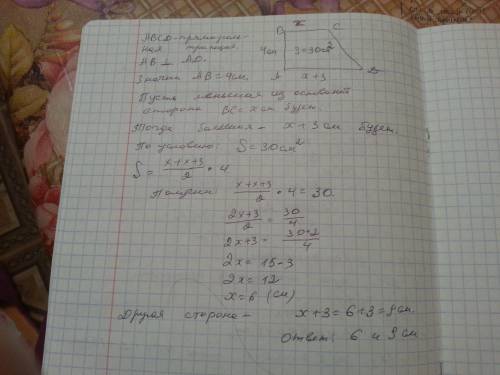 ABCD-прямоуголь-
ная трапеция
AB ⊥ AD.
Значит AB = 4см.
B x C
4см S=30см²
A x+3 D
Пусть меньшая из оснований
сторона BC = x см будет.
Тогда большая - x + 3 см будет.
По условию: S = 30 см²
S = \frac{x+x+3}{2} · 4
Получим: \frac{x+x+3}{2} · 4 = 30.
\frac{2x+3}{2} = \frac{30}{4}
2x+3 = \frac{30·2}{4}
2x = 15-3
2x = 12
x = 6 (см)
Другая сторона - x+3 = 6+3 = 9 см.
Ответ: 6 и 9 см